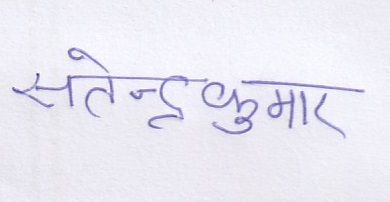 सतेन्द्र कुमार